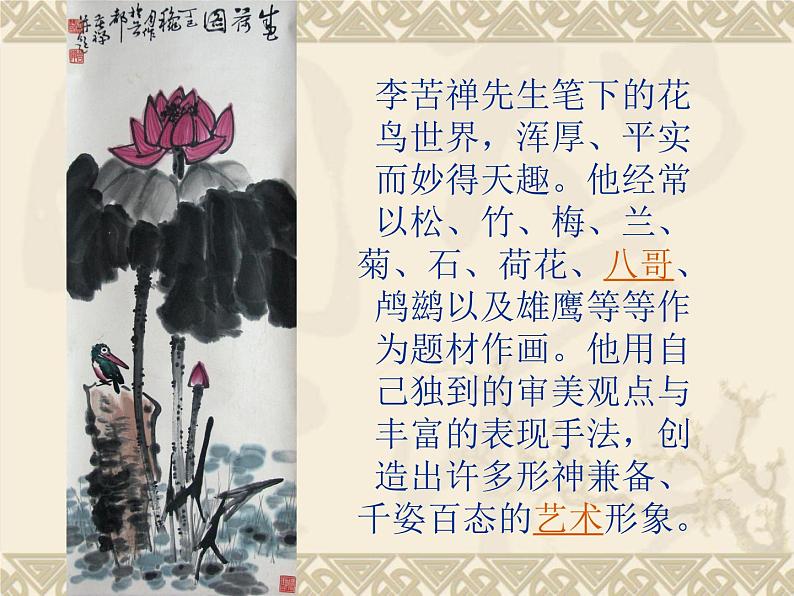 盛荷图
李苦禅先生笔下的花
鸟世界，浑厚、平实
而妙得天趣。他经常
以松、竹、梅、兰、
菊、石、荷花、八哥、
鸬鹚以及雄鹰等等作
为题材作画。他用自
己独到的审美观点与
丰富的表现手法，创
造出许多形神兼备、
千姿百态的艺术形象。